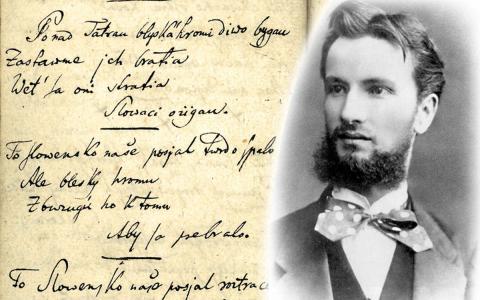 Ponad Tatrau blyská hromi diwo bygau
Zastawme jch bratia
Wet' sa oni stratia
Slowaci ožigau.
To slowensko naše posjal twrdo spalo
Ale blesky hromu
ho k tomu
Aby sa prebralo.
To Slowensko naše posjal